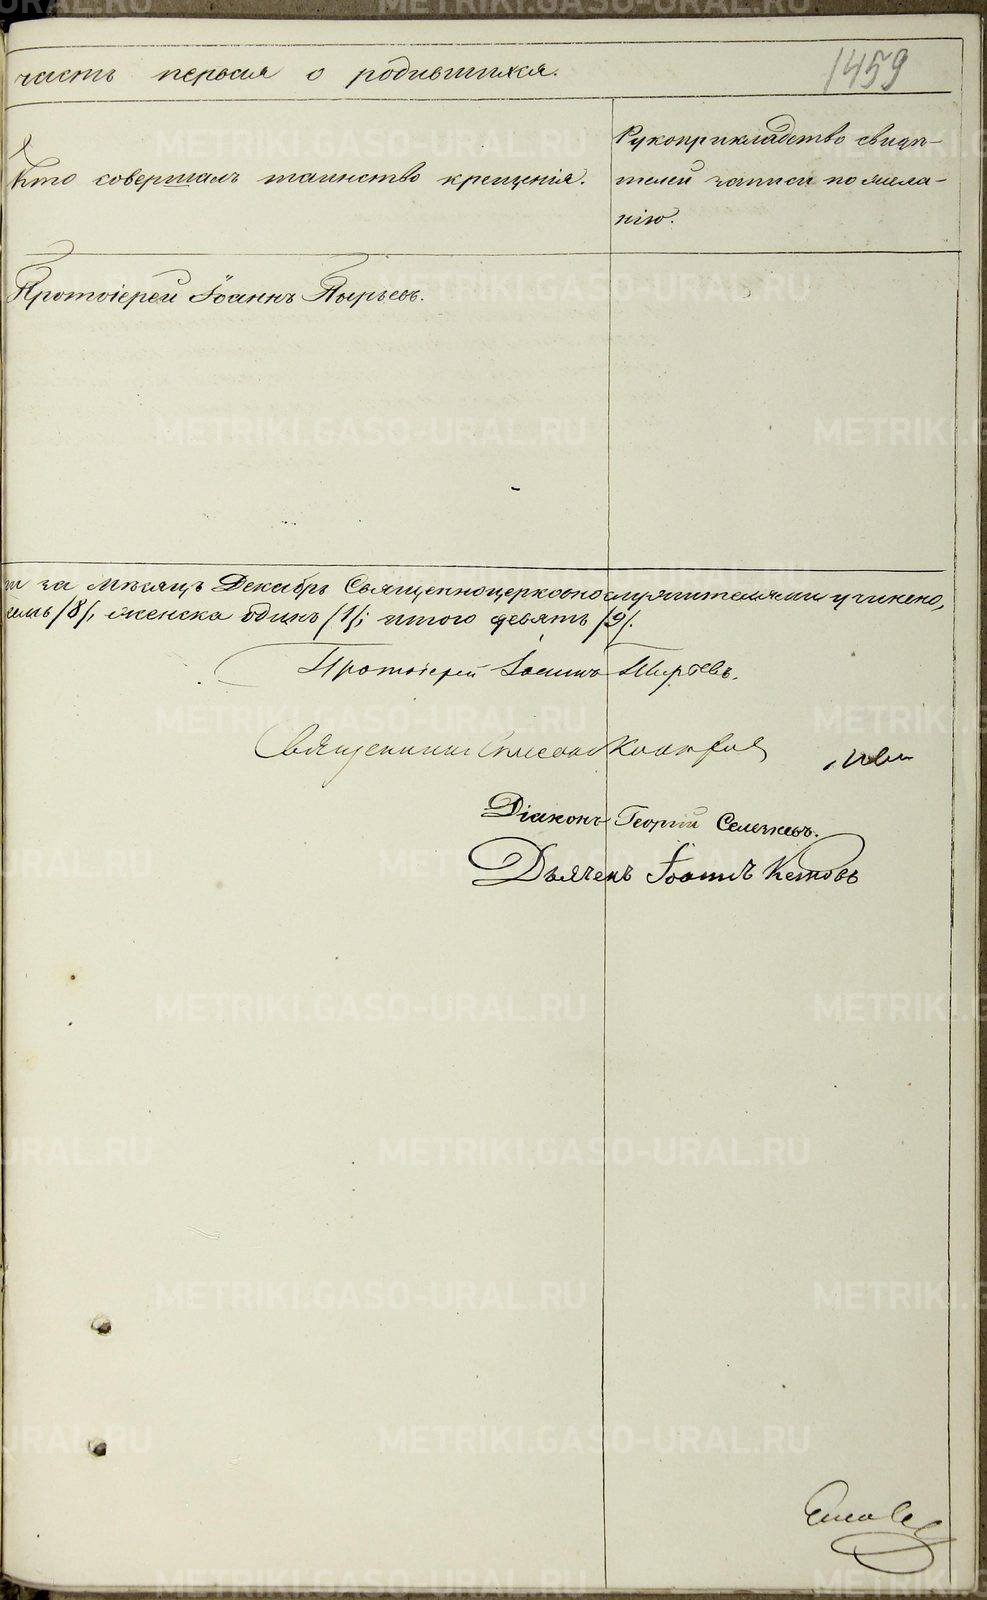 часть первая о родившихся.
1459
Кто совершалъ таинство крещенія.
Рукоприкладство свидѣ-
телей записи по жела-
нію.
Протоіерей Іоаннъ Пырьевъ.
за мѣсяцъ Декабрь Священноцерковнослужителями учинено,
/8/, женска одинъ /1/; итого девять /9/.
Протоіерей Іоаннъ Пырьевъ.
Священникъ
Діаконъ Георгій Селечковъ.
Дьячекъ Іоаннъ Кетовъ
METRIKI.GASO-URAL.RU